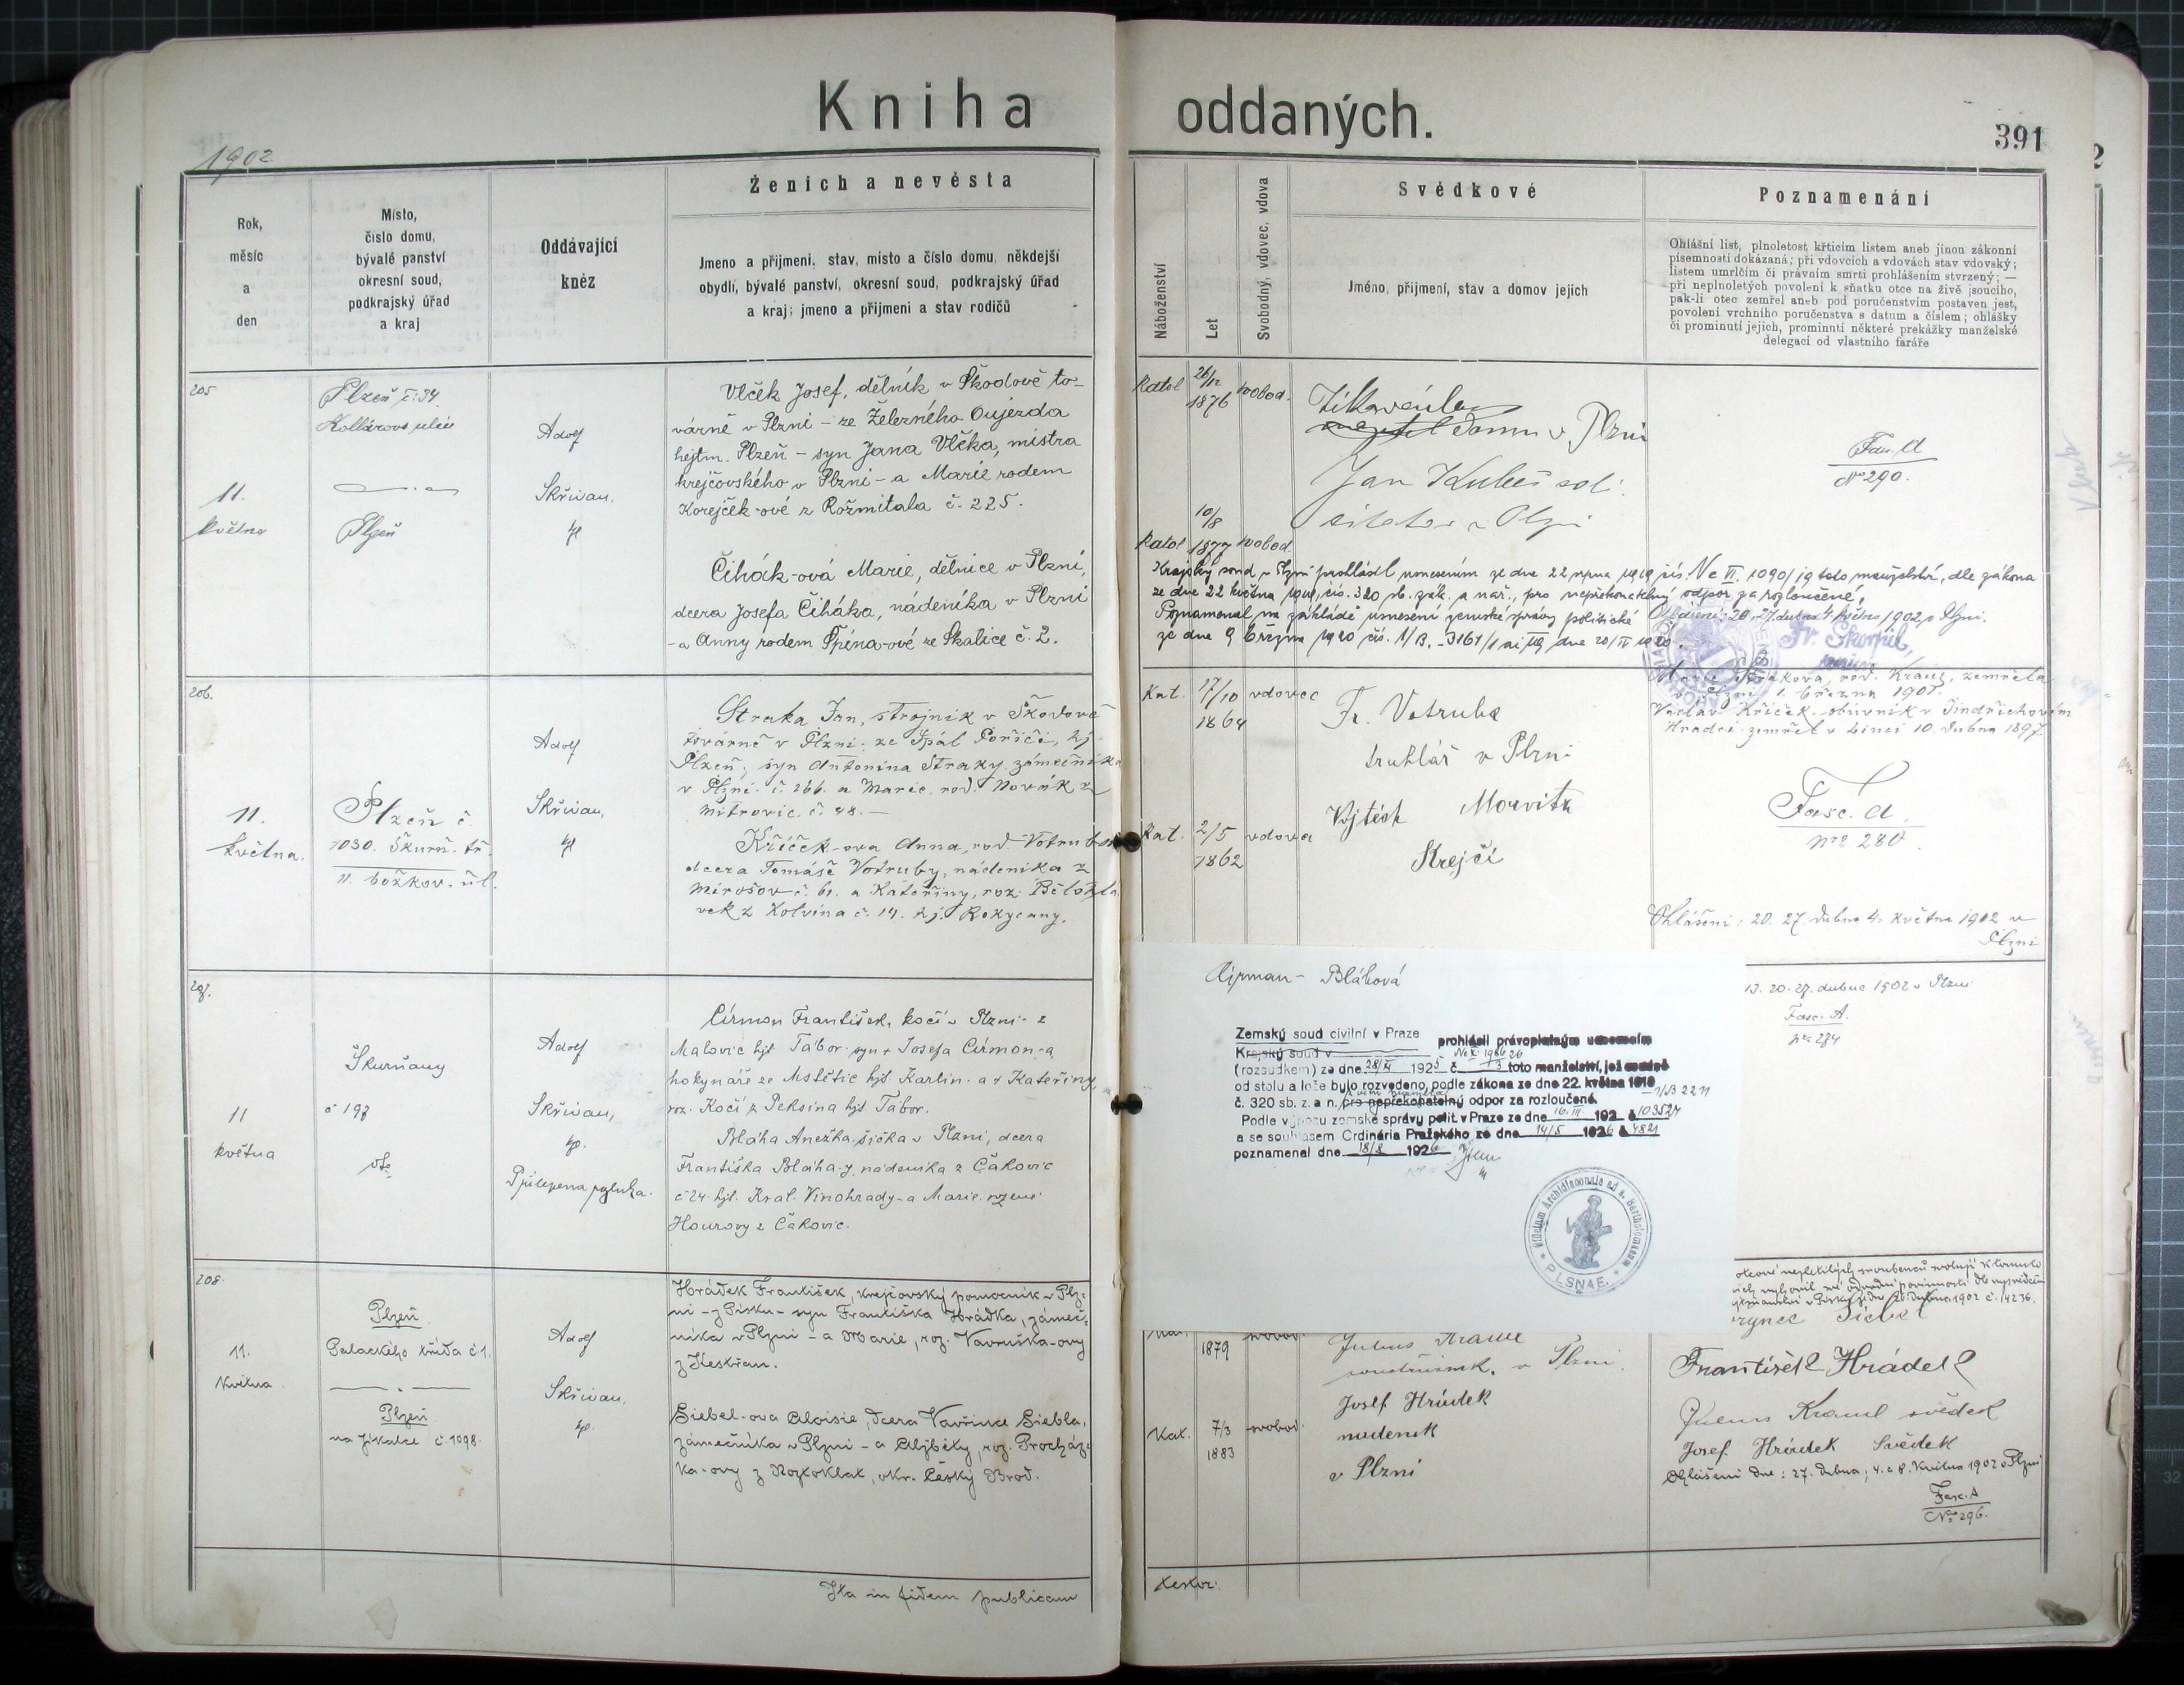 Kniha oddaných.
391
1902
Rok,
měsíc
a
den
Místo,
číslo domu,
bývalé panství
okresní soud,
podkrajský úřad
a kraj
Oddávající
kněz
Ženich a nevěsta
Jmeno a přijmení, stav, místo a číslo domu, někdejší
obydlí, bývalé panství, okresní soud, podkrajský úřad
a kraj; jmeno a přijmeni a stav rodičů
Náboženství
Let
Svobodný, vdovec, vdova
Svědkové
Jméno, přijmení, stav a domov jejich
Poznamenání
Ohlášní list, plnoletost křticím listem aneb jinou zákonní
písemností dokázaná; při vdovcích a vdovách stav vdovský;
listem umrlčím či právním smrti prohlášením stvrzený; —
při neplnoletých povolení k sňatku otce na živě jsoucího,
pak-li otec zemřel aneb pod poručenstvím postaven jest,
povolení vrchního poručenstva s datum a číslem; ohlášky
či prominutí jejich, prominutí některé prekážky manželské
delegací od vlastního faráře
205
11.
května
Plzeň č. 34
Kollárova ulice
Plzeň
Adolf
Skřivan,
Vlček Josef, dělník v Škodově to-
várně v Plzni - ze Železného Oujezda
hejtm. Plzeň - syn Jana Vlčka, mistra
krejčovského v Plzni - a Marie rodem
Korejček-ové z Rožmitala č. 225.
Čihák-ová Marie, dělnice v Plzni,
dcera Josefa Čiháka, nádeníka v Plzni
- a Anny rodem Špína-ové ze Skalice č. 2.
Katol 26/12 1876 svobod.
domu v Plzni
Jan
Katol 10/8 1877 svobod.
Fasc. A
No 290.
Krajský soud v Plzni prohlásil usnesením ze dne 22 srpna 1919 čís. Nc VI. 1090/19 toto manželství, dle zákona
ze dne 22 května 1919, čís. 320 sb. zák. a nař., pro nepřekonatelný odpor za rozloučené.
Poznamenal na základě usnesení zemské správy politické
Ohlášení: 20., 27. dubna 4. května 1902 v Plzni.
ze dne 9 března 1920 čís. 1/B. - 3161/1 dne 20/IV 1920.
Fr. Škorpil,
206.
11.
května.
Plzeň č.
1030. Škurň. tř.
11. božkov. ul.
Adolf
Skřivan,
Straka Jan, strojník v Škodově
továrně v Plzni; ze Spál Poříčí, hj
Plzeň; syn Antonína Straky, zámečníka
v Plzni č. 266. a Marie, rod. Novák z
Mitrovic č. 48. —
Křiček-ova Anna, rod. Votruba
dcera Tomáše Votruby, nádeníka z
Mirošov č. 61. a Kateřiny, roz. Bělohla
vek z Kolvína č. 14. hj. Rokycany.
Kat. 17/10 1864 vdovec
Fr. Votruba
truhlář v Plzni
Kat. 2/5 1862 vdova
Vojtěch Morvitz
Krejčí
Marie Straková, rod. Kraus, zemřela
v Plzni 1. března 1901.
Václav Křiček obuvník v Jindřichovém
Hradci zemřel v Linci 10. dubna 1897.
Fasc. A.
nro 280
Ohlášení: 20. 27. dubna 4. května 1902 v
Plzni
207.
11
května
Škurňany
č 197
Adolf
Skřivan,
Círmon František, kočí v Plzni - z
Malovic hjt Tábor - syn + Josefa Círmon-a,
hokynáře ze Mstětic hjt Karlín - a + Kateřiny,
roz. Kočí z Peksina hjt Tábor.
Bláha Anežka, šička v Plzni, dcera
Františka Bláha-y, nádeníka z Čakovic
č 24. hjt. Král. Vinohrady - a Marie rozené
Hourovy z Čakovic.
Círman - Bláhová
Zemský soud civilní v Praze prohlásil právoplatným usnesením
Krajský soud v
(rozsudkem) ze dne 28/XI 1925 č. toto manželství, jež
od stolu a lože bylo rozvedeno, podle zákona ze dne 22. května 1919
č. 320 sb. z. a n. pro nepřekonatelný odpor za rozloučené.
Podle výnosu zemské správy polit. v Praze ze dne 16. III. 192
a se souhlasem Ordinária Pražského ze dne 14/5 1926 č. 4821
poznamenal dne 18/8 1926
PLSNAE.
13. 20. 27. dubna 1902 v Plzni
Fasc. A.
nro 284
208.
11.
května.
Plzeň
Palackého třída č. 1.
Plzeň
na Jikalce č. 1098.
Adolf
Skřivan,
Hrádek František, krejčovský pomocník v Plz-
ni - z Písku - syn Františka Hrádka, zámeč-
níka v Plzni - a Marie, roz. Vavruška-ovy
z Kestřan.
Siebel-ova Aloisie, dcera Vavřince Siebla,
zámečníka v Plzni - a Alžběty, roz. Procház-
ka-ovy z Roztoklat, okr. Český Brod.
1879
Julius Kraml
v Plzni.
Josef Hrádek
nadeník
v Plzni
Kat. 7/3 1883 svobod.
Siebel
František Hrádek
Julius Kraml svědek
Josef Hrádek Svědek
Ohlášení dne: 27. dubna; 4. a 8. května 1902 v Plzni
Fasc. A
No 296.
Ita in fidem publicam